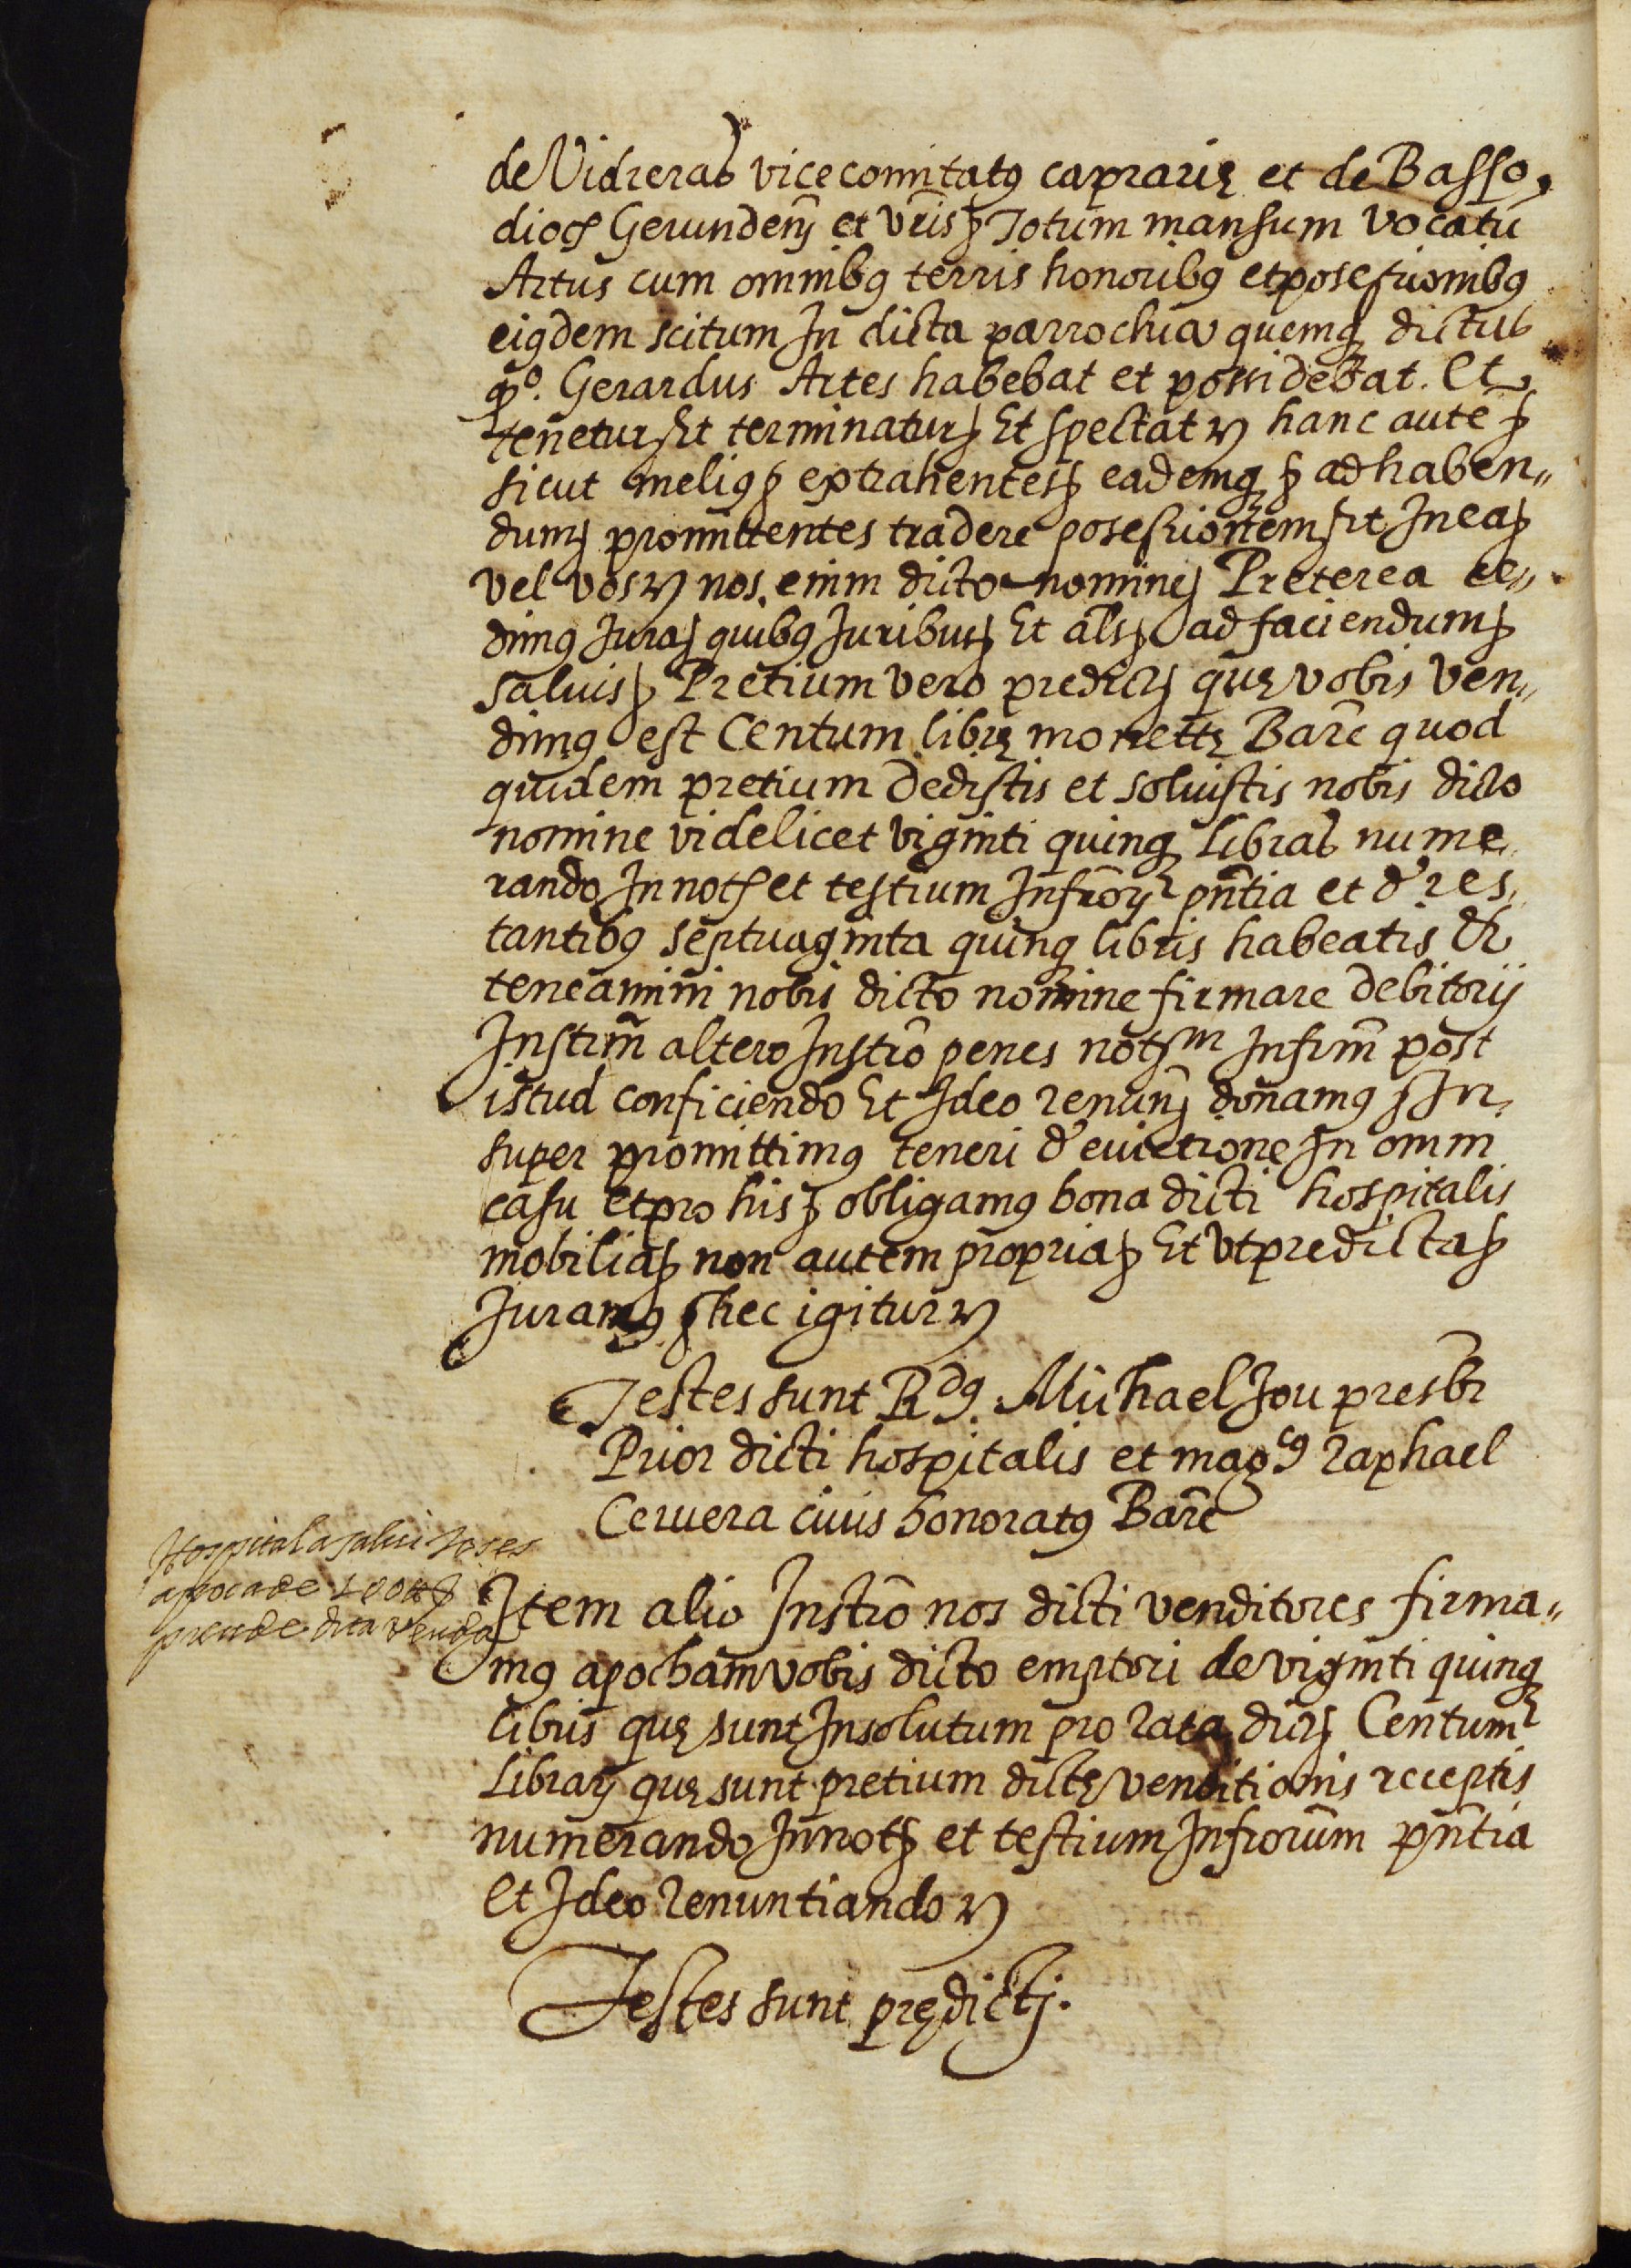 de Vidreras vicecomitatꝰ caprarię et de Basso,
dioc̃ Gerundeñ et vr̃isꝫ Totum mansum vocatũ
Artus cum omnibꝰ terris honoribꝰ et posessionibꝰ
eiꝰdem scitum In dicta parrochia quemqꝫ dictus
qº. Gerardus Artes habebat et possidebat. Et
tenetur Et terminaturꝫ Et spectatꝫ hanc autẽ ꝫ
sicut meliꝰꝫ extrahentesꝫ eademqꝫ ꝫ ad haben„
dumꝫ promittentes tradere posessionem sit In eaꝫ
vel vosꝫ nos enim dicto nomineꝫ Preterea ce„
dimꝰ Juraꝫ quibꝰ Juribusꝫ Et al̃sꝫ ad faciendumꝫ
saluisꝫ Pretium vero predictꝫ quę vobis ven„
dimꝰ est Centum librę monettę Barc̃ quod
quidem pretium dedistis et soluistis nobis dicto
nomine videlicet viginti quinqꝫ libras nume„
rando In not̃ et testium Infr̃orꝫ pñtia et de res„
tantibꝰ septuaginta quinqꝫ libris habeatis et
teneamini nobis dicto nomine firmare debitorij
Instrm̃ altero Instrõ penes notm̃ Infrm̃ post
istud conficiendo Et Ideo renunꝫ donamꝰ ꝫ In„
super promittimꝰ teneri de euictione In omni
casu et pro hisꝫ obligamꝰ bona dicti hospitalis
mobiliaꝫ non autem propriaꝫ Et vt predictaꝫ
Juramꝰ ꝫ hec igiturꝫ
Testes sunt Rdꝰ. Michael Jou presbr̃
Prior dicti hospitalis et magcꝰ Raphael
Ceruera ciuis honoratꝰ Barc̃
Hospital
apoca de 100 ₶
preu de dita venda
Item alio Instrõ nos dicti venditores firma„
mꝰ apocham vobis dicto emptori de viginti quinqꝫ
libris quę sunt Insolutum pro rata dictꝫ Centum
Librarꝫ quę sunt pretium dictę venditionis receptis
numerando In notꝫ et testium Infrorũm pñtia
Et Ideo Renuntiandoꝫ
Testes sunt prędictj.